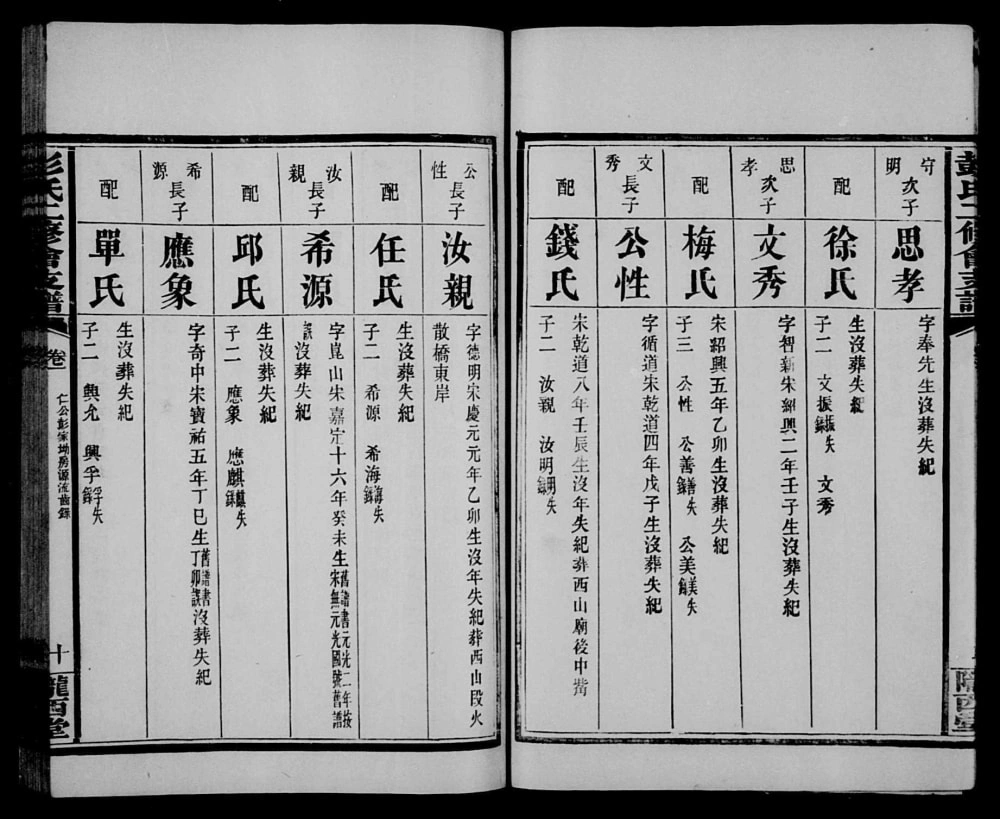 守明次子 思孝 字奉先生沒葬失紀
配 徐氏 生沒葬失紀
子二 文振振失錄 文秀
思孝次子 文秀 字智新宋紹興二年壬子生沒葬失紀
配 梅氏 宋紹興五年乙卯生沒葬失紀
子三 公性 公善善失錄 公美美失錄
文秀長子 公性 字循道宋乾道四年戊子生沒葬失紀
配 錢氏 宋乾道八年壬辰生沒年失紀葬西山廟後中嘴
子二 汝親 汝明明失錄
公性長子 汝親 字德明宋慶元元年乙卯生沒年失紀葬西山段火
散橋東岸
配 任氏 生沒葬失紀
子二 希源 希海海失錄
汝親長子 希源 字崑山宋嘉定十六年癸未生舊譜書元光二年按宋無元光國號舊譜
誤沒葬失紀
配 邱氏 生沒葬失紀
子二 應象 應麒麒失錄
希源長子 應象 字奇中宋寶祐五年丁巳生舊譜書丁卯誤沒葬失紀
配 單氏 生沒葬失紀
子二 興允 興孚孚失錄
彭氏二修會支譜 卷 仁公彭家坳房源流齒錄 十 隴西堂